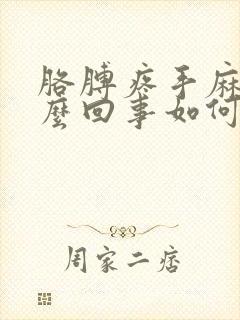 胳膊疼手麻
麼回事如何
周家二痞